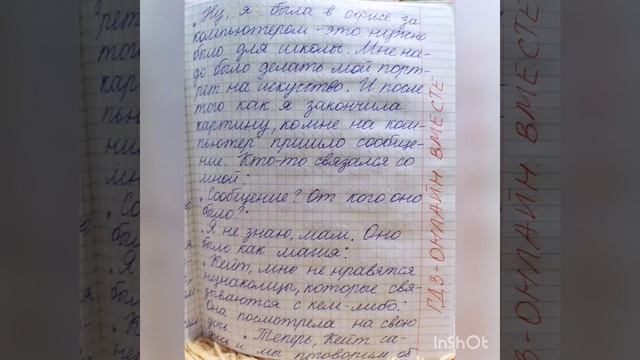 • Ну, я была в офисе за
компьютером - это нужно
было для школы. Мне на-
до было делать мой порт-
рет на искусство. И посл
того как я закончила
картину, ко мне на ком-
пьютер пришло сообще-
ние. Кто-то связался со
мной:
• Сообщение? От кого оно
было?
• Я не знаю, мам. Оно
было как магия:
• Кейт, мне не нравятся
незнакомцы, которые свя-
зываются с кем-либо:
Она посмотрела на свою
дочь. • Теперь, Кейт са-
и мы поговорим об
ГДЗ-ОНЛАЙН ВМЕСТЕ
InShOt